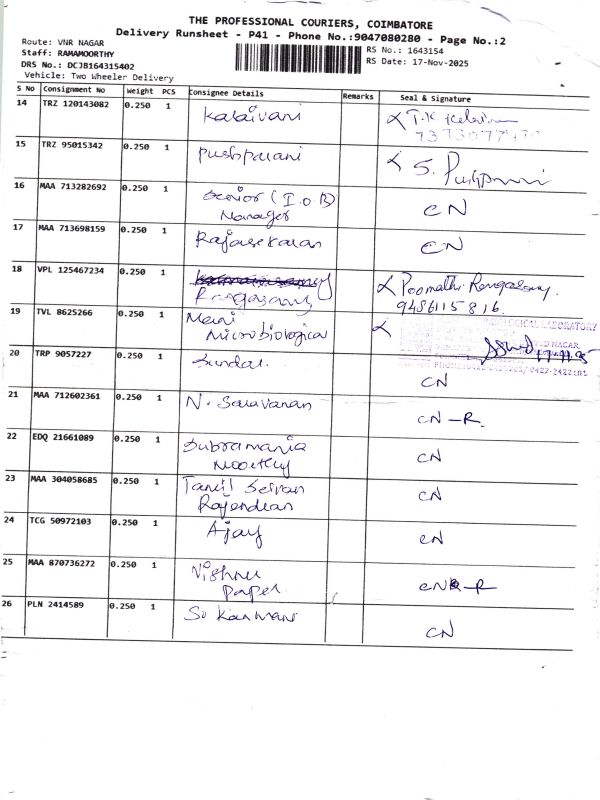 THE PROFESSIONAL COURIERS, COIMBATORE
Delivery Runsheet - P41 - Phone No.:9047080280 - Page No.:2
Route: VNR NAGAR
Staff: RAMAMOORTHY
DRS No.: DCJB164315402
Vehicle: Two Wheeler Delivery
RS No.: 1643154
RS Date: 17-Nov-2025
S No Consignment No Weight PCS Consignee Details Remarks Seal & Signature
14 TRZ 120143082 0.250 1 Kalaivani
15 TRZ 95015342 0.250 1 Pushparani S.
16 MAA 713282692 0.250 1 Senior (I.O.B) CN
Manager
17 MAA 713698159 0.250 1 Rajasekaran CN
18 VPL 125467234 0.250 1 Rengasamy Poomathi Rengasamy.
9486115816.
19 TVL 8625266 0.250 1 Mani
Microbiological LABORATORY
20 TRP 9057227 0.250 1 Sundar. CN
21 MAA 712602361 0.250 1 N. Saravanan CN-R.
22 EDQ 21661089 0.250 1 Subramania CN
Moorthy
23 MAA 304058685 0.250 1 Tamil Selvan CN
Rajendran
24 TCG 50972103 0.250 1 Ajay CN
25 MAA 870736272 0.250 1 Vishnu
Paper CN-R
26 PLN 2414589 0.250 1 Sukanmani CN